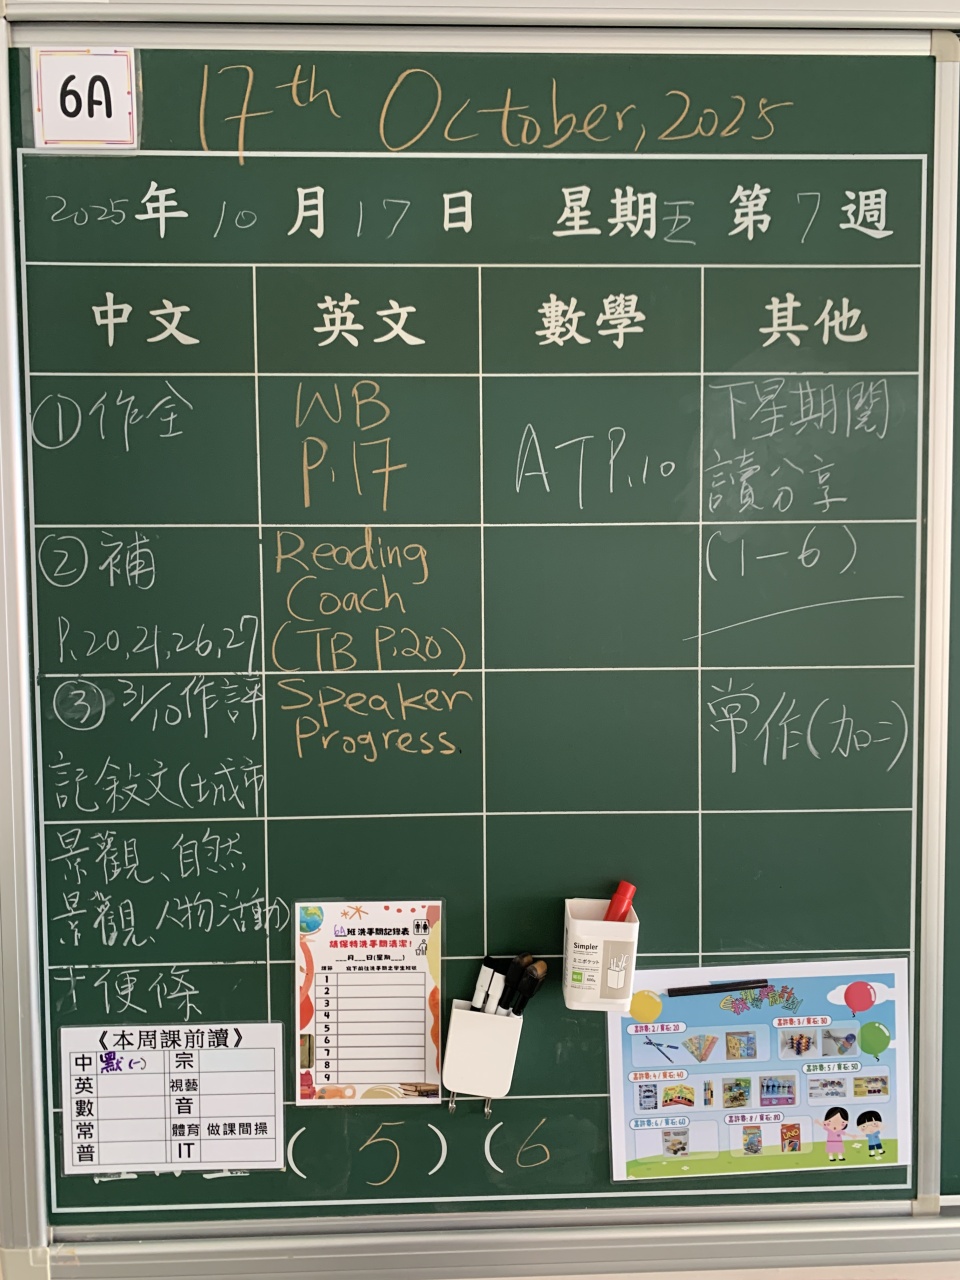 6A
17th October, 2025
2025年10月17日 星期五 第7週
中文 英文 數學 其他
①作全
②補
P.20,21,26,27
③ 3/10作評
記敍文(城市
景觀、自然
景觀、人物活動)
便條
WB
P.17
Reading
Coach
(TB P.20)
Speaker
Progress
AT P.10
下星期閱
讀分享
(1-6)
常作(加二)
6A班洗手間記錄表
請保持洗手間清潔!
___月___日(星期___)
1
2
3
4
5
6
7
8
9
Simpler
ミニポケット
《本周課前讀》
中 默(一) 宗
英 視藝
數 音
常 體育 做課間操
普 IT
( 5 ) ( 6
UNO